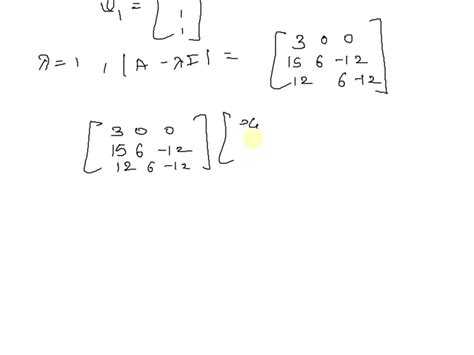 v₁ = [ 1
1 ]
λ=1 , |A - λI| = [ 3 0 0
15 6 -12
12 6 -12 ]
[ 3 0 0
15 6 -12
12 6 -12 ] [